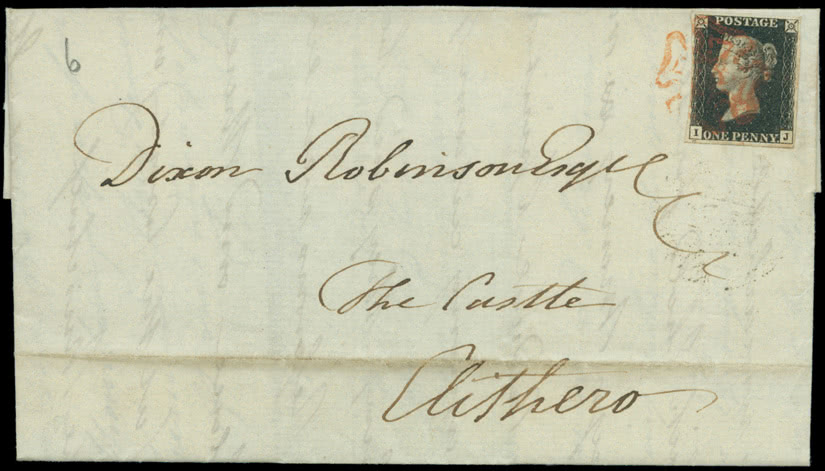 6
POSTAGE
I ONE PENNY. J
Dixon Robinson Esqre
The Castle
Clithero